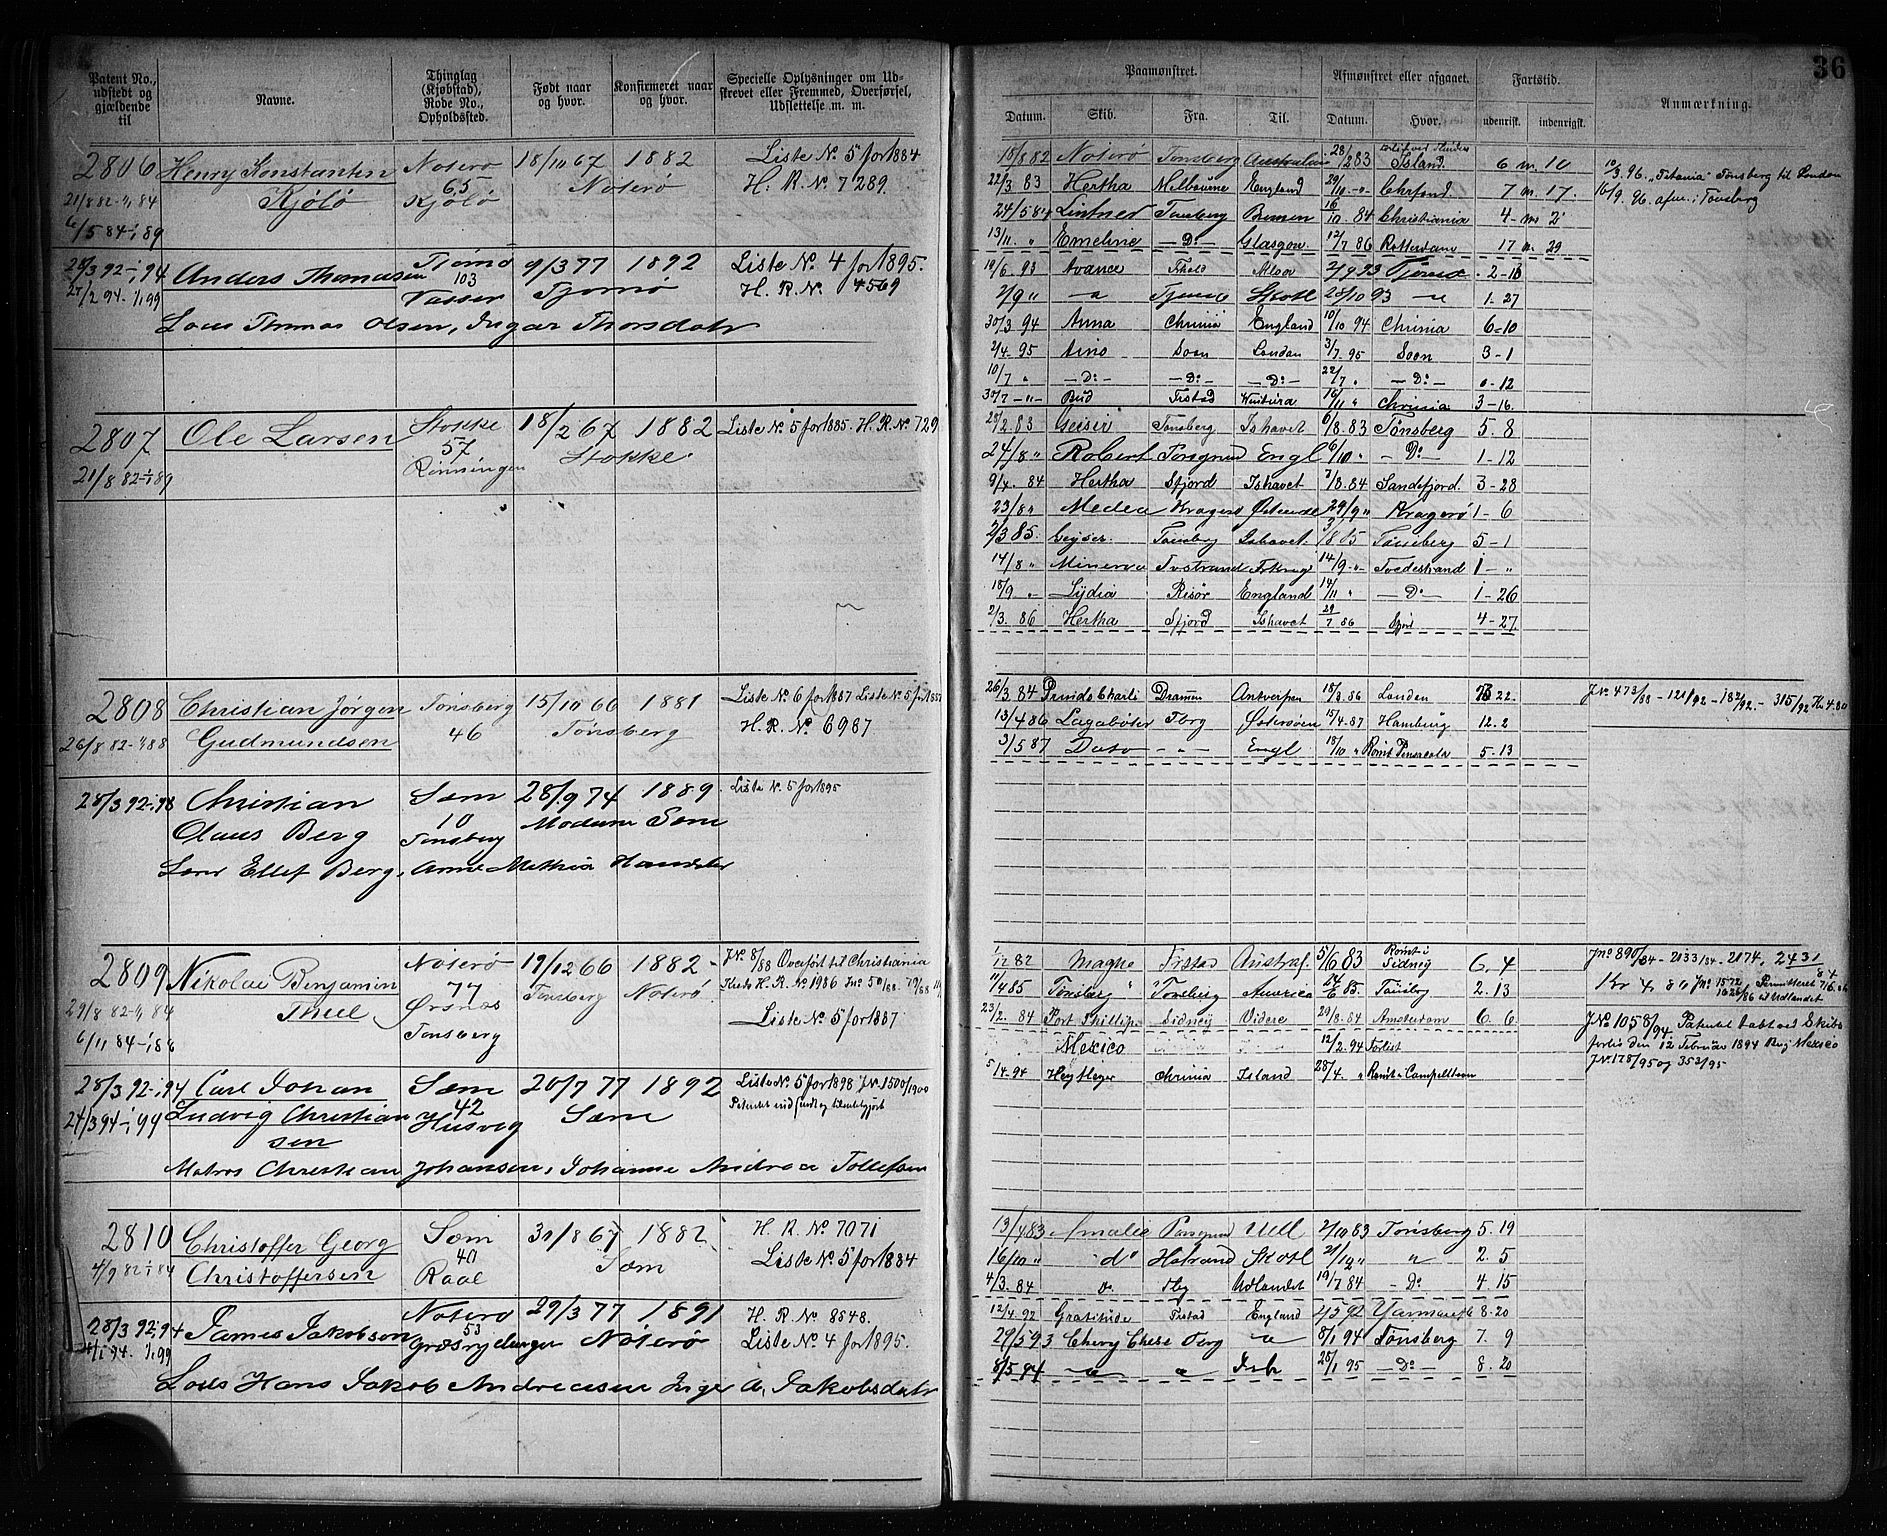 36
Patent No., udstedt og gjældende til
Navne.
Thinglag (Kjøbstad), Rode No., Opholdssted.
Født naar og hvor.
Konfirmeret naar og hvor.
Specielle Oplysninger om Udskrevet eller Fremmed, Overførsel, Udslettelse m. m.
Paamønstret.
Afmønstret eller afgaaet.
Fartstid.
Anmærkning.
Datum. Skib. Fra. Til. Datum. Hvor. udenrigsk. indenrigsk.
2806 Henry Konstantin Nøterø 18/10 67 1882 Liste No. 5 for 1884
65 Nøterø H. R. No 7289.
Kjølø Kjølø
6/5 84-1/1 89
18/8 82 Nøterø Tønsberg Australien 28/2 83 Island 6 m. 10
22/3 83 Hertha Melbourne England 29/11 -"- Chrsand 7 m. 17.
24/5 84 Lintner Tønsberg Bremen 16/10. 84 Christiania 4- m 2
13/11. " Emeline -Do- Glasgow 12/7 86 Rotterdam 17 m. 29
10/3. 96. "Titania" Tønsberg til London
16/9. 96. afm. i Tønsberg
28/3 92-1/1 94 Anders Thomassen Tjømø 9/3 77 1892 Liste No. 4 for 1895.
27/2 94-1/1 99 103 Tjømø H. R. No. 4569
Vasser
Lods Thomas Olsen, Ingar Thorsdatr
19/6. 93 Avance 2/9 93 Tjømø 2-13
2/9 " Tjømø Skotl 28/10 93 1-27
30/3 94 Anna Chrnia England 10/10 94 Chrnia 6-10
2/4. 95 Aino Soon London 3/7. 95 Soon 3-1
10/7 " -Do- -Do- -Do- 22/7 " -Do- 0-12
30/7 -"- Frstad 16/11 " Chrnia 3-16.
2807 Ole Larsen Stokke 18/2 67 1882 Liste No. 5 for 1885. H. R. No 729
57 Stokke
21/8 82-1/1 89 Rønningen
28/2. 83 Geisir Tønsberg Ishavet 6/8. 83 Tønsberg 5. 8
24/8 " Robert Porsgrund Engl 6/10 " -Do- 1-12
9/4. 84 Hertha Sfjord Ishavet 7/8. 84 Sandefjord. 3-28
23/8 " Medea Kragerø Ostende 29/9 " Kragerø 1-6
2/3 85. Geyser Tønsberg Ishavet 3/8 85 Tønsberg 5-1
14/8 " Minerva Tvstrand 14/9 -"- Tvedestrand 1-"
18/9 " Lydia Risør England 14/11 " -Do- 1-26
2/3. 86 Hertha Sfjord Ishavet 29/7 86 Sfjord 4-27
2808 Christian Jørgen Tønsberg 15/10 66 1881 Liste No. 6 for 1887 Liste No. 5 for 1887
Gudmundsen 46 Tønsberg H. R. No 6987
26/8 82-1/1 88
26/3 84 Drammen Antverpen 18/3. 86 London 22.
13/4 86 Lagabøter Tbrg Østersøen 15/4. 87 Hamburg 12. 2
3/5 87 Dato -"- Engl 18/10 " Rømt Pensacola 5. 13
J. No. 473/88 - 121/92 - 182/92 - 315/92 Kr 4.80
28/3 92-1/1 98 Christian Sæm 28/9 74 1889 Liste No. 5 for 1895
Claus Berg 10 Modum Sæm
Tønsberg
Søns Ellef Berg, Anne Mathia
2809 Nikolai Benjamin Nøterø 19/12 66 1882 J.No 8/88 Overført til Christiania
Thue 77 Tønsberg Nøterø Kreds H. R. No 1986
29/8 82-1/1 84 Ørsnæs
6/11 84-1/1 88 Tønsberg Liste No. 5 for 1887
1/12 82 Magne Frstad Austral. 5/10 83 Rømt i Sidney 6. 4
11/4 85 Tønsberg Tønsberg America 85. Tønsberg 2. 13
23/2. 84 Port Phillip Sidney Videre 29/8. 84 Amsterdam 6. 6
Mexico 12/2. 94 Forlist
5/4. 94 Chrnia Island 28/4. " Rømt i
J No 890/84 - 2133/84 - 2174, 2431/84
Kr 4 80 J No 1572 1626/86 Permitteret til Udlandet
J. No. 1058/94 Patentet tabt ved Skibs
forlis den 12 Februar 1894 Brg Mexico
J. No. 178/95 og 353/95
28/3 92-1/1 94 Carl Johan Sæm 20/7 77 1892 Liste No. 5 for 1898 J. No. 1500/1900
24/3 94-1/1 99 Ludvig Christian 42 Sæm
sen Husvig
Matros Christian Johansen, Johanne Andrea Tollefsen
2810 Christoffer Georg Sæm 31/8 67 1882 H. R. No 7071
4/9 82-1/1 84 Christoffersen 40 Sæm Liste No. 5 for 1884
Raael
13/4 83 Amalie Porsgrund Udl 2/10 83 Tønsberg 5. 19
16/10 " "d" Skotl 21/12 " " 2. 5
4/3. 84 Udlandet 19/7 84 -Do- 4. 15
28/3 92-1/1 94 James Jakobson Nøterø 29/3 77 1891 H. R. No 8548.
4/1 94. 1/1 99 53 Nøterø Liste No. 4 for 1895.
Lods Hans Jakob Andreassen Inger A. Jakobsdatr
12/4. 92 Gratitude Frstad England 2/5 92 Yarmouth 8. 20
29/5 93 Chevy Chase Tbrg 8/1 94 Tønsberg 7. 9
8/5. 94 28/1 95 -Do- 8. 20